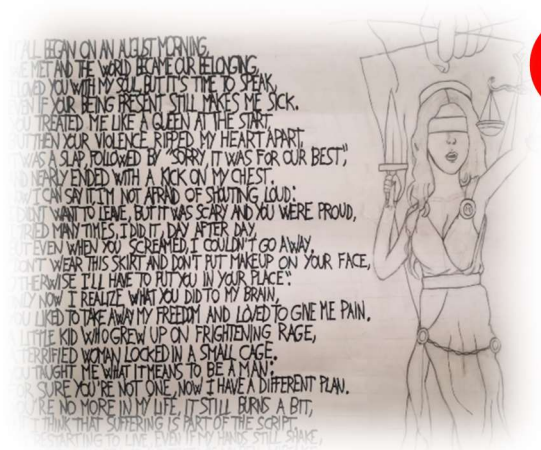 ALL BEGAN ON AN AUGUST MORNING,
MET AND THE WORLD BECAME OUR BELONGING,
LOVED YOU WITH MY SOUL, BUT IT'S TIME TO SPEAK,
EVEN IF YOUR BEING PRESENT STILL MAKES ME SICK.
YOU TREATED ME LIKE A QUEEN AT THE START
BUT THEN YOUR VIOLENCE RIPPED MY HEART APART.
WAS A SLAP, FOLLOWED BY "SORRY, IT WAS FOR OUR BEST",
AND NEARLY ENDED WITH A KICK ON MY CHEST.
NOW I CAN SAY IT, I'M NOT AFRAID OF SHOUTING LOUD:
DIDN'T WANT TO LEAVE, BUT IT WAS SCARY AND YOU WERE PROUD,
TRIED MANY TIMES, I DID IT, DAY AFTER DAY,
BUT EVEN WHEN YOU SCREAMED, I COULDN'T GO AWAY,
DON'T WEAR THIS SKIRT AND DON'T PUT MAKEUP ON YOUR FACE,
OTHERWISE I'LL HAVE TO PUT YOU IN YOUR PLACE".
ONLY NOW I REALIZE WHAT YOU DID TO MY BRAIN,
YOU LIKED TO TAKE AWAY MY FREEDOM AND LOVED TO GIVE ME PAIN.
A LITTLE KID WHO GREW UP ON FRIGHTENING RAGE,
TERRIFIED WOMAN LOCKED IN A SMALL CAGE.
YOU TAUGHT ME WHAT IT MEANS TO BE A MAN:
FOR SURE YOU'RE NOT ONE, NOW I HAVE A DIFFERENT PLAN.
YOU'RE NO MORE IN MY LIFE, IT STILL BURNS A BIT,
I THINK THAT SUFFERING IS PART OF THE SCRIPT.
RESTARTING TO LIVE, EVEN IF MY HANDS STILL SHAKE,